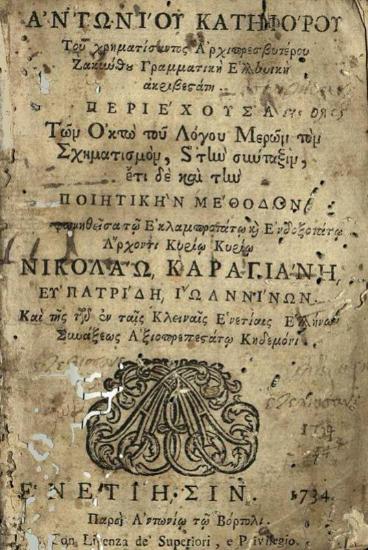 ΑʹΝΤΩΝΙʹΟΥ ΚΑΤΗΦΟΡΟΥ
Τοῦ χρηματίσαντος Αʹρχιπρεσβυτέρου
Ζακιύθου Γραμματικὴ Εʹλλωικὴ
ἀκριβεςάτη
ΠΕΡΙΕʹΧΟΥΣΑ
Τῶν Οʹκτὼ τοῦ Λόγου Μερῶν τὸν
Σχηματισμὸν, ϗ τὼ σύνταξιν,
ἔτι δὲ καὶ τὼ
ΠΟΙΗΤΙΚΗʹΝ ΜΕʹΘΟΔΟΝ
τῷ Εʹκλαμπροτάτῳ ϗ Εʹνδοξοτάτῳ
Αʹρχοντι Κυρίῳ Κυρίῳ
ΝΙΚΟΛΑʹΩ, ΚΑΡΑΓΙΑΝΗ,
ΕΥʹΠΑΤΡΙΔΗ, ΙʹΩΑΝΝΙʹΝΩΝ.
Καὶ τῆς τῶν ἐν ταῖς Κλειναῖς Εʹνετίαις Εʹλλήνων
Συνάξεως Αʹξιοπρεπεςάτῳ Κηδεμόνι.
1734
1734
ΕʹΝΕΤΙΗΣΙΝ. 1734.
Παρὰ Αʹντωνίῳ τῷ Βόρτολι.
Con Licenza de' Superiori, e Privilegio.